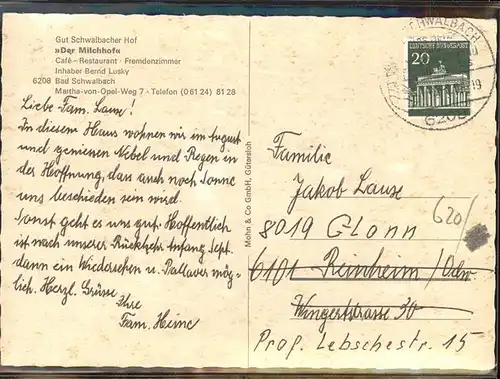 Gut Schwalbacher Hof
»Der Milchhof«
Café – Restaurant · Fremdenzimmer
Inhaber Bernd Lusky
6208 Bad Schwalbach
Martha-von-Opel-Weg 7 · Telefon (0 61 24) 81 28
Liebe Fam. Lause!
In diesem Haus wohnen wir im August
und genießen Nebel und Regen in
der Hoffnung, dass auch noch Sonne
uns beschieden sein wird.
Sonst geht es uns gut. Hoffentlich
ist nach unserer Rückkehr Anfang Sept.
dann ein Wiedersehen u. Pallaver mög-
lich. Herzl. Grüsse
Ihre
Fam. Heinc
Mohn & Co GmbH, Gütersloh
SCHWALBACH
6208
DEUTSCHE BUNDESPOST
20
Familie
Jakob Lause
8019 Glonn
6101 Reinheim /Odw
Wingertstrasse 30
Prop. Lebschestr. 15
620/